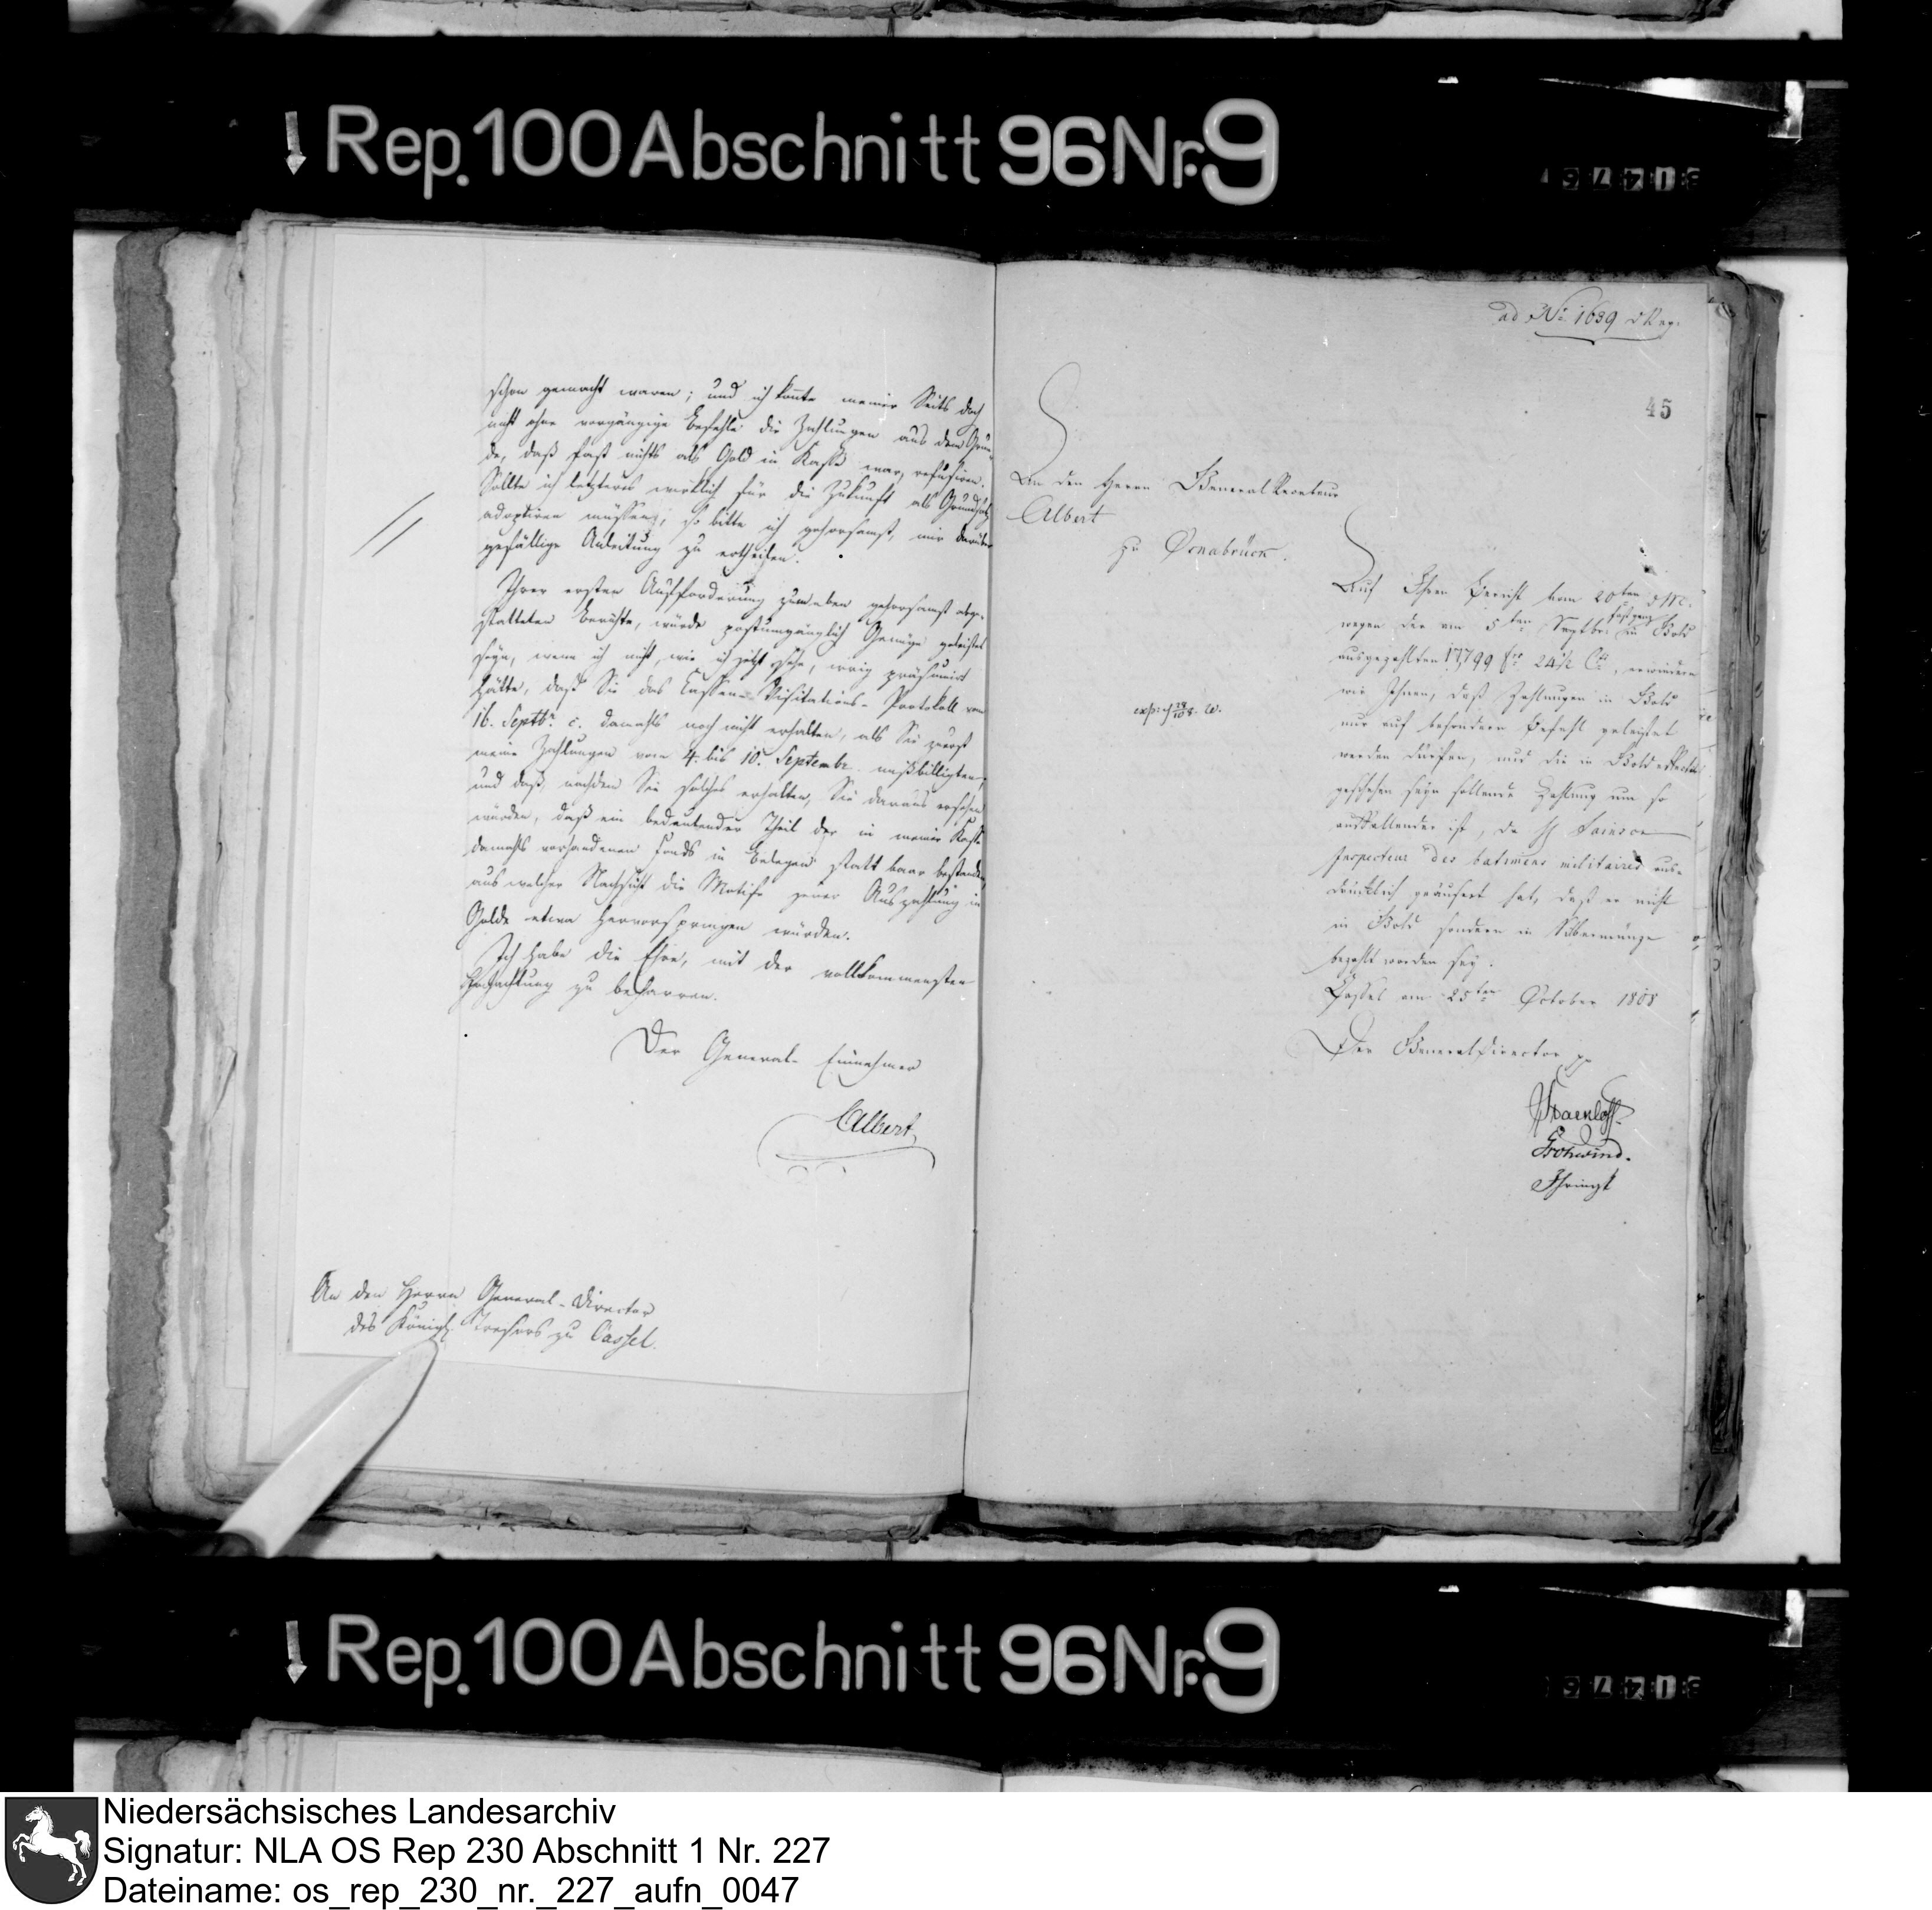 Rep. 100 Abschnitt 96 Nr. 9
schon gemacht waren; und ich konnte meiner Seits doch
nicht ohne vorgängige Befehle die Zahlungen aus dem Grun-
de, daß fast nichts als Gold in Kasse war, refüsiren.
Sollte ich letzteres wirklich für die Zukunft als Grundsatz
adoptiren müssen, so bitte ich gehorsamst, mir darüber
gefällige Anleitung zu ertheilen.
Ihrer ersten Aufforderung zum eben gehorsamst abge-
statteten Berichte, würde Genüge geleistet
seyn, wenn ich nicht, wie ich jetzt sehe, irrig präsumirt
hätte, daß Sie das Cassen-Visitations-Protokoll vom
16. Septbr. c. damahls noch nicht erhalten, als Sie zuerst
meine Zahlungen vom 4. bis 10. Septembr. mißbilligten;
und daß, nachdem Sie solches erhalten, Sie daraus ersehen
würden, daß ein bedeutender Theil der in meiner Kasse
damahls vorhandenen Fonds in Belegen statt baar bestanden,
aus welcher Nachsicht die Motife jener Auszahlung in
Golde etwa hervorspringen würden.
Ich habe die Ehre, mit der vollkommensten
Hochachtung zu beharren.
Der General-Einnehmer
Albert
An den Herrn General-Director
des Königl. Tresors zu Cassel.
ad No. 1639 d Reg.
45
An den Herrn General
Albert
zu Osnabrück.
Auf Ihren Bericht vom 20ten d M.
wegen der am 5ten Septbr. fast ganz in Gold
ausgezahlten 17,799 frc 24½ Ct., erwiedern
wir Ihnen, daß Zahlungen in Gold
nur auf besondern Befehl geleistet
werden dürfen, und die in Gold
geschehen seyn sollende Zahlung um so
auffallender ist, da H
Inspecteur des batimens militaires aus-
drücklich geäußert hat, daß er nicht
in Gold sondern in Silbermünze
bezahlt worden sey.
Cassel am 25ten October 1808
Der Generaldirector
Rep. 100 Abschnitt 96 Nr. 9
Niedersächsisches Landesarchiv
Signatur: NLA OS Rep 230 Abschnitt 1 Nr. 227
Dateiname: os_rep_230_nr._227_aufn_0047